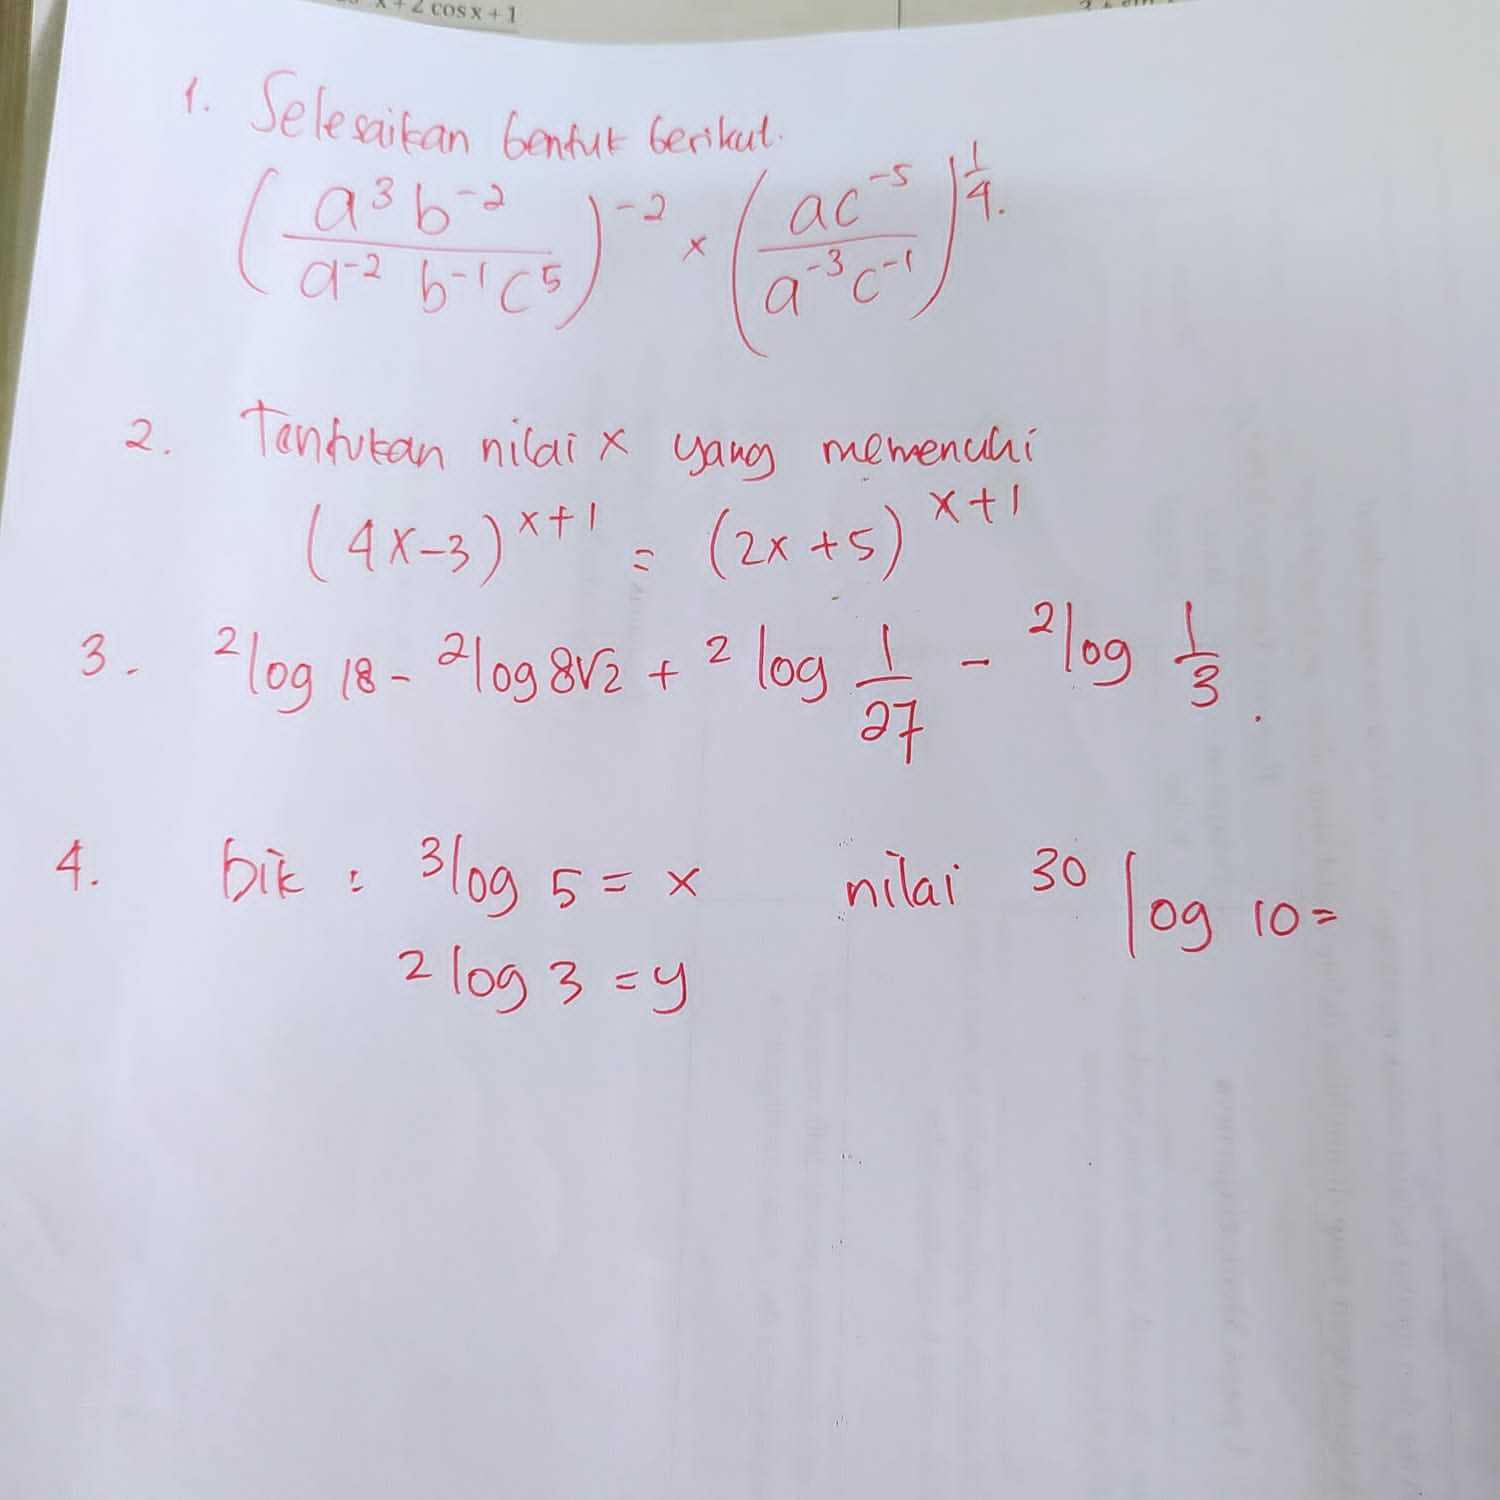 x + 2 cos x + 1
1. Selesaikan bentuk berikut.
(a³b⁻² / a⁻² b⁻¹c⁵)⁻² × (ac⁻⁵ / a⁻³c⁻¹)^¼.
2. Tentukan nilai x yang memenuhi
(4x-3)^x+1 = (2x+5)^x+1
3. ²log 18 - ²log 8√2 + ²log 1/27 - ²log 1/3.
4. dik : ³log 5 = x nilai ³⁰log 10 =
²log 3 = y